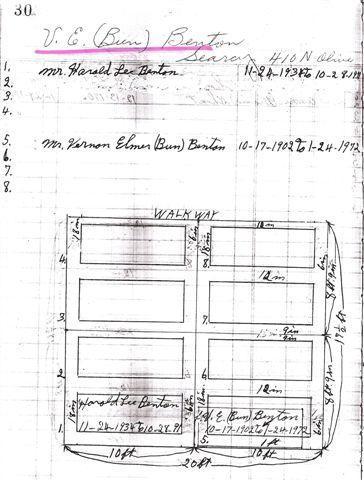 30
V. E. (Bun) Benton
Searcy 410 N Olive
1. Mr. Harold Lee Benton 11-24-1934 to 10-28-
2.
3.
4.
5. Mr. Vernon Elmer (Bun) Benton 10-17-1902 to 1-24-1972
6.
7.
8.
WALKWAY
18 in 6 in 12 in
4. 8. 18 in 6 in
12 in
3. 7.
9 in
9 in
2 6
12 in
Harold Lee Benton V. E. (Bun) Benton
11-24-1934 to 10-28-91 10-17-1902 to 1-24-1972
1. 5. 1 ft
10 ft 10 ft
20 ft